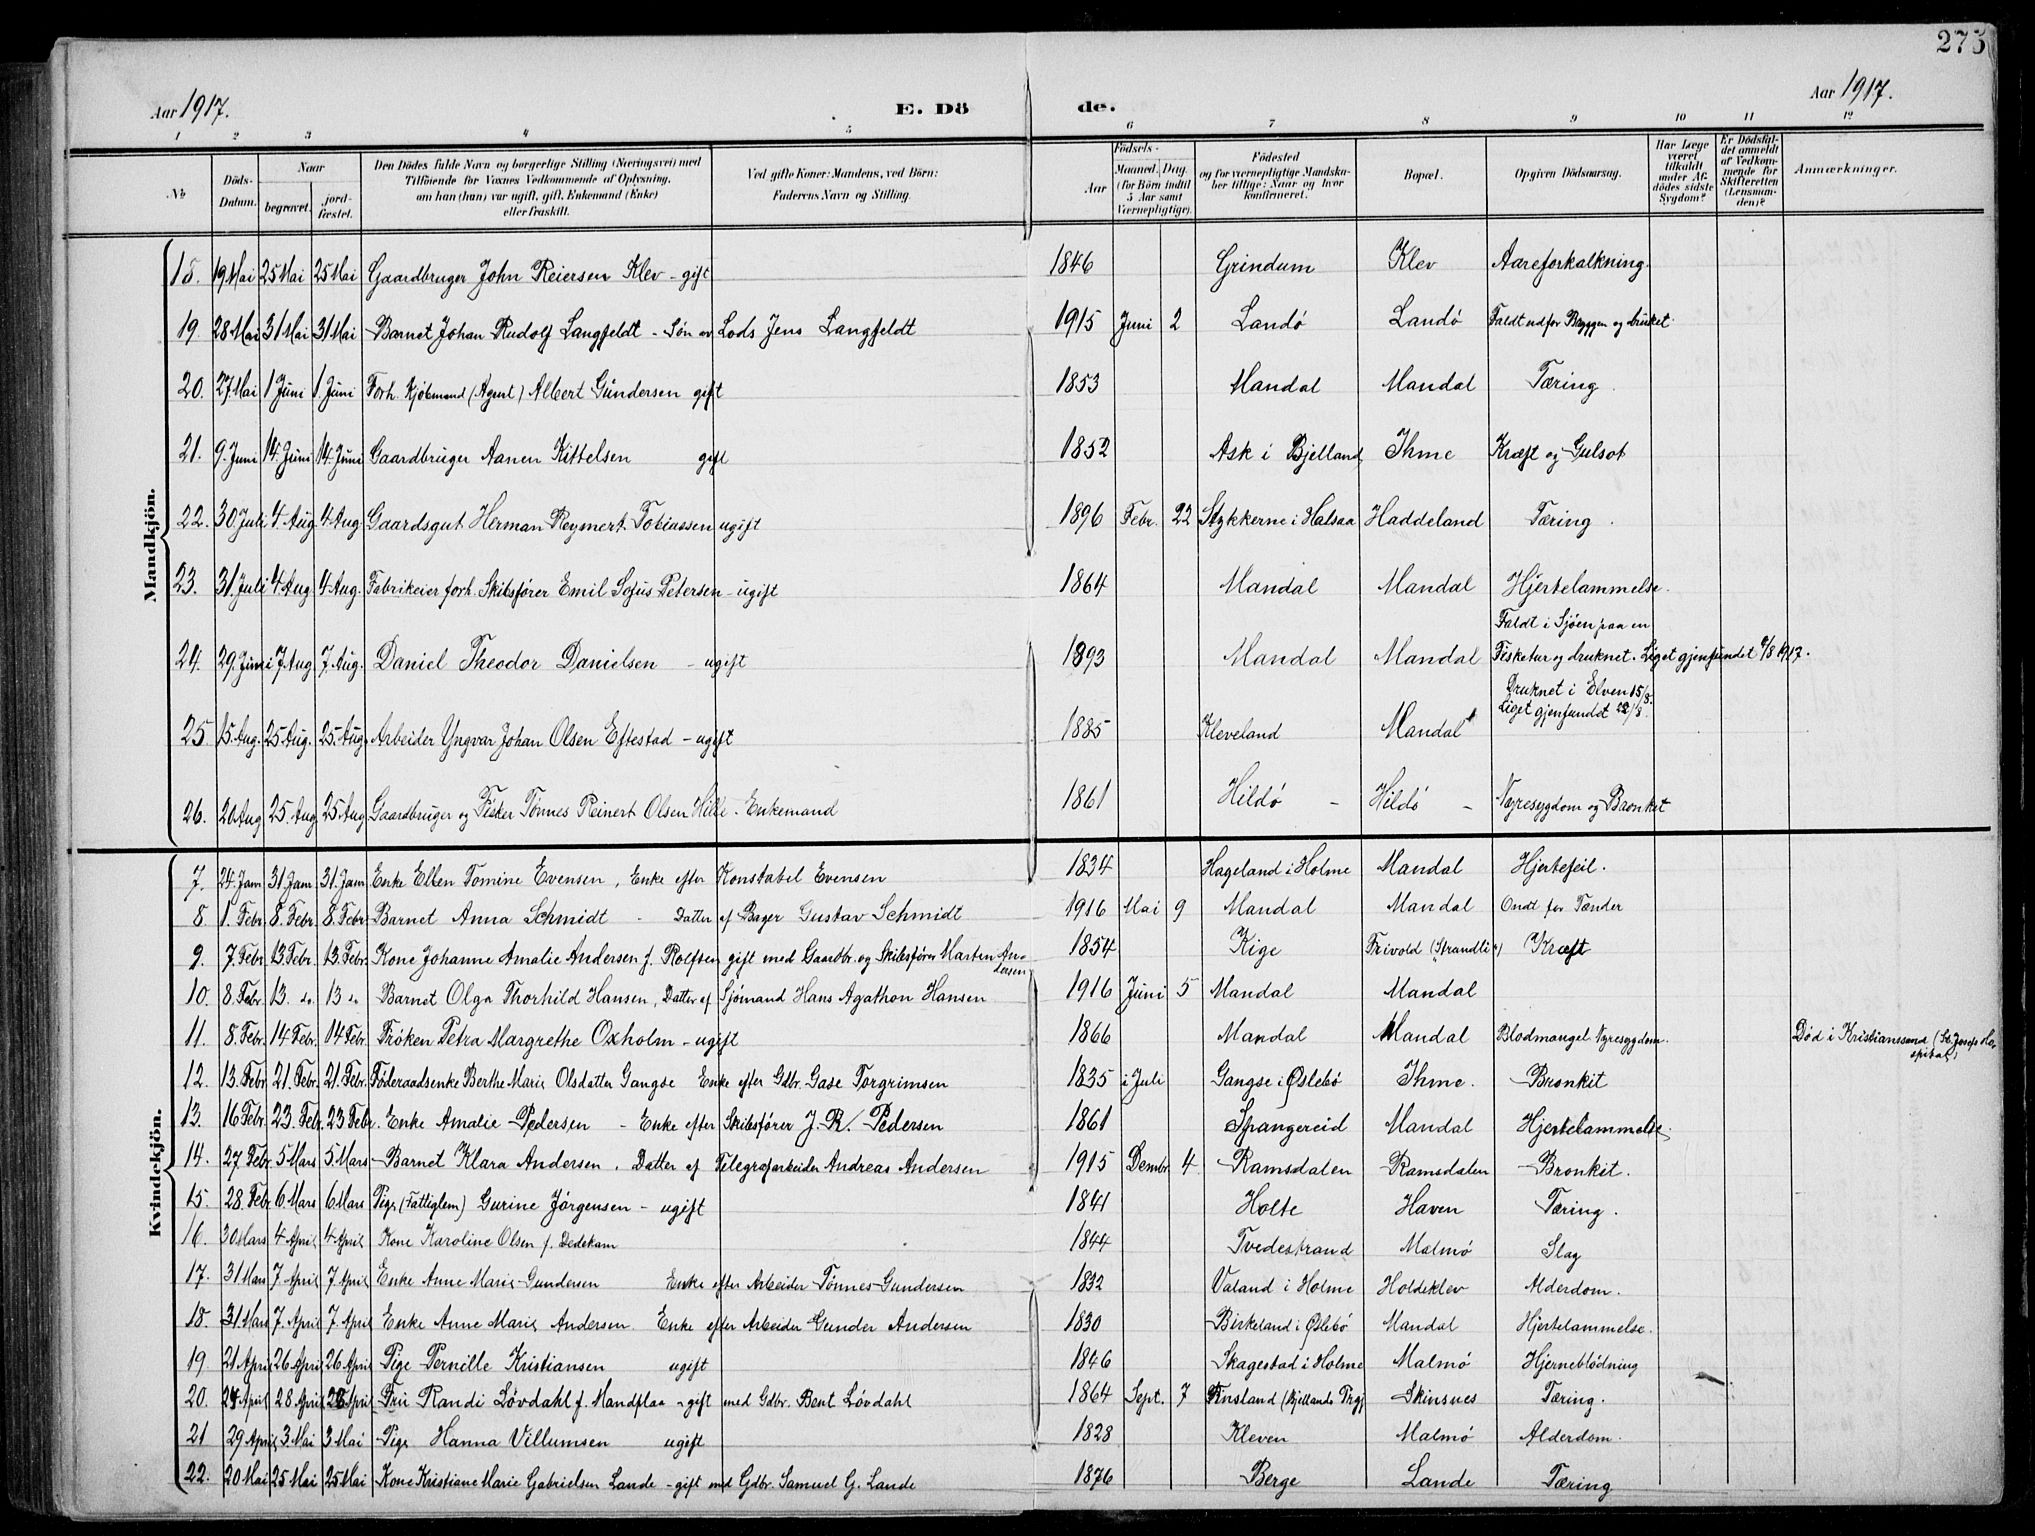 275
Aar 1917. E. Dö de. Aar 1917.
1 2 3 4 5 6 7 8 9 10 11 12
No Döds-Datum. Naar begravet. jord-fæstet. Den Dödes fulde Navn og borgerlige Stilling (Næringsvei) med Tilföiende for Voxnes Vedkommende af Oplysning, om han (hun) var ugift, gift, Enkemand (Enke) eller fraskilt. Ved gifte Koner: Mandens, ved Börn: Faderens Navn og Stilling. Födsels- Aar Maaned. Dag. (for Börn indtil 5 Aar samt Værnepligtige). Födested og for værnepligtige Mandskaber tillige: Naar og hvor konfirmeret. Bopæl. Opgiven Dödsaarsag. Har Læge været tilkaldt under Afdödes sidste Sygdom? Er Dödsfaldet anmeldt af Vedkommende for Skifteretten (Lensmanden)? Anmærkninger.
Mandkjön.
18. 19 Mai 25 Mai 25 Mai Gaardbruger John Reiersen Klev - gift 1846 Grindum Klev Aareforkalkning.
19. 28 Mai 31 Mai 31 Mai Barnet Johan Rudolf Langfeldt - Søn av Lods Jens Langfeldt 1915 Juni 2 Landø Landø Faldt udfor Bryggen og druknet
20. 27. Mai 1 Juni 1. Juni Forh. Kjøbmand (Agent) Albert Gundersen gift 1853 Mandal Mandal Tæring.
21. 9. Juni 14. Juni 14. Juni Gaardbruger Aanen Kittelsen gift 1852 Ask i Bjelland Ihme Kræft og Gulsot
22. 30. Juli 4. Aug. 4 Aug. Gaardsgut Herman Reymert Tobiassen ugift 1896 Febr. 22 Stykkerne i Halsaa Haddeland Tæring.
23. 31. Juli 4 Aug 4 Aug. Fabrikeier forh. Skibsfører Emil Sofus Petersen - ugift 1864 Mandal Mandal Hjertelammelse.
Faldt i Sjøen paa en
24. 29. Juni 7. Aug 7. Aug. Daniel Theodor Danielsen - ugift 1893 Mandal Mandal Fisketur og druknet. Liget gjenfundet 6/8 1917.
Druknet i Elven 15/8.
Liget gjenfundet 22/8.
25. 15. Aug. 25 Aug. 25. Aug. Arbeider Yngvar Johan Olsen Eftestad - ugift 1885 Kleveland Mandal
26. 20 Aug 25. Aug 25 Aug Gaardbruger og Fisker Tønnes Reinert Olsen Hille - Enkemand 1861 Hildø - Hildø - Nyresygdom og Bronkit
Kvindekjön.
7. 24. Jan 31. Jan 31. Jan Enke Ellen Tomine Evensen, Enke efter Konstabel Evensen 1834 Hageland i Holme Mandal Hjertefeil.
8. 1. Febr. 8. Febr 8. Febr Barnet Anna Schmidt - Datter af Bager Gustav Schmidt 1916 Mai 9 Mandal Mandal Ondt for Tænder
9. 7. Febr. 13. Febr. 13. Febr. Kone Johanne Amalie Andersen f. Rolfsen gift med Gaardbr. og Skibsfører Marten Andersen 1854 Kige Frivold (Strandli) Kræft
10. 8. Febr. 13. do. 13 do Barnet Olga Thorhild Hansen, Datter af Sjømand Hans Agathon Hansen 1916 Juni 5 Mandal Mandal
11. 8. Febr. 14 Febr. 14 Febr. Frøken Petra Margrethe Oxholm - ugift 1866 Mandal Mandal Blodmangel. Nyresygdom. Død i Kristianssand (St. Josefs Hospital)
12. 13. Febr. 21. Febr. 21. Febr. Føderaadsenke Berthe Marie Olsdatter Gangse Enke efter Gdbr. Gase Torgrimsen 1835 i Juli Gangse i Øslebø Ihme. Bronkit
13. 16 Febr. 23. Febr. 23 Febr. Enke Amalie Pedersen - Enke efter Skibsfører J. R. Pedersen 1861 Spangereid Mandal Hjertelammelse.
14. 27 Febr. 5 Mars 5 Mars Barnet Klara Andersen. Datter af Telegrafarbeider Andreas Andersen 1915 Dembr. 4 Ramsdalen Ramsdalen Bronkit.
15. 28. Febr 6. Mars 6 Mars Pige (Fattiglem) Gurine Jørgensen - ugift 1841 Holte Haven Tæring.
16. 30 Mars 4 April 4 April Kone Karoline Olsen f. Dedekam 1844 Tvedestrand Malmø Slag
17. 31 Mars 7 April 7 April Enke Anne Marie Gundersen Enke efter Arbeider Tønnes Gundersen 1832 Valand i Holme Holdeklev Alderdom.
18. 31. Mars 7. April 7. April Enke Anne Marie Andersen Enke efter Arbeider Gunder Andersen 1830 Birkeland i Øslebø Mandal Hjertelammelse.
19 21 April 26 April 26 April Pige Pernille Kristiansen ugift 1846 Skagestad i Holme Malmø Hjerneblødning
20. 24 April 28 April 28 April Fru Randi Løvdahl f. Mandflaa - gift med Gdbr. Bent Løvdahl 1864 Sept. 7 Finsland (Bjellands Prgj Skinsnes Tæring.
21 29 April 3. Mai 3 Mai Pige Hanna Villumsen ugift 1828 Kleven Malmø Alderdom.
22. 20 Mai 25 Mai 25 Mai Kone Kristiane Marie Gabrielsen Lande - gift med Gdbr. Samuel G. Lande 1876 Berge Lande Tæring